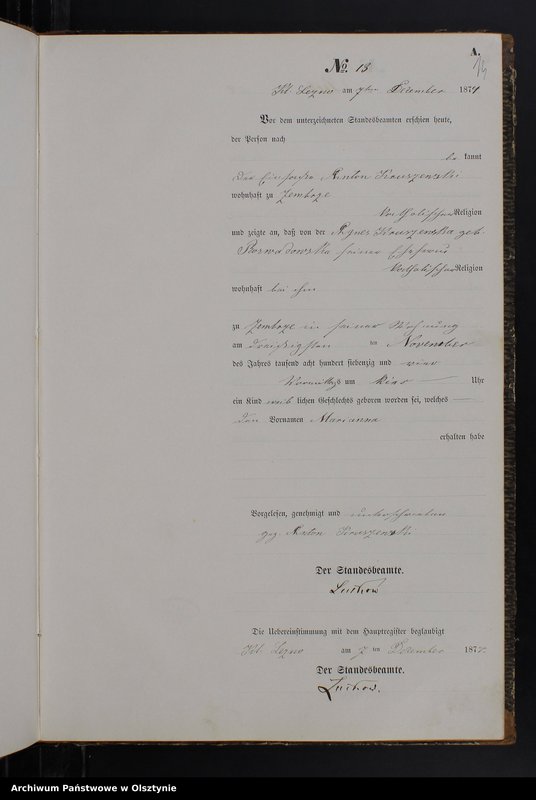 A.
No. 13
Kl. Lezno am 7ten Dezember 1874
Vor dem unterzeichneten Standesbeamten erschien heute,
der Person nach
be kannt
Der Anton Kruszewski
wohnhaft zu Zembrze
katholischer Religion
und zeigte an, daß von der Agnes Kruszewska geb.
seiner Ehefrau
katholischer Religion
wohnhaft bei ihm
zu Zembrze in seiner Wohnung
am dreißigsten ten November
des Jahres tausend acht hundert siebenzig und vier
Vormittags um Uhr
ein Kind weib lichen Geschlechts geboren worden sei, welches
den Vornamen Marianna
erhalten habe
Vorgelesen, genehmigt und unterschrieben
gez. Anton Kruszewski
Der Standesbeamte.
Die Uebereinstimmung mit dem Hauptregister beglaubigt
Kl. Lezno am 7 ten Dezember 1874
Der Standesbeamte.
Archiwum Państwowe w Olsztynie